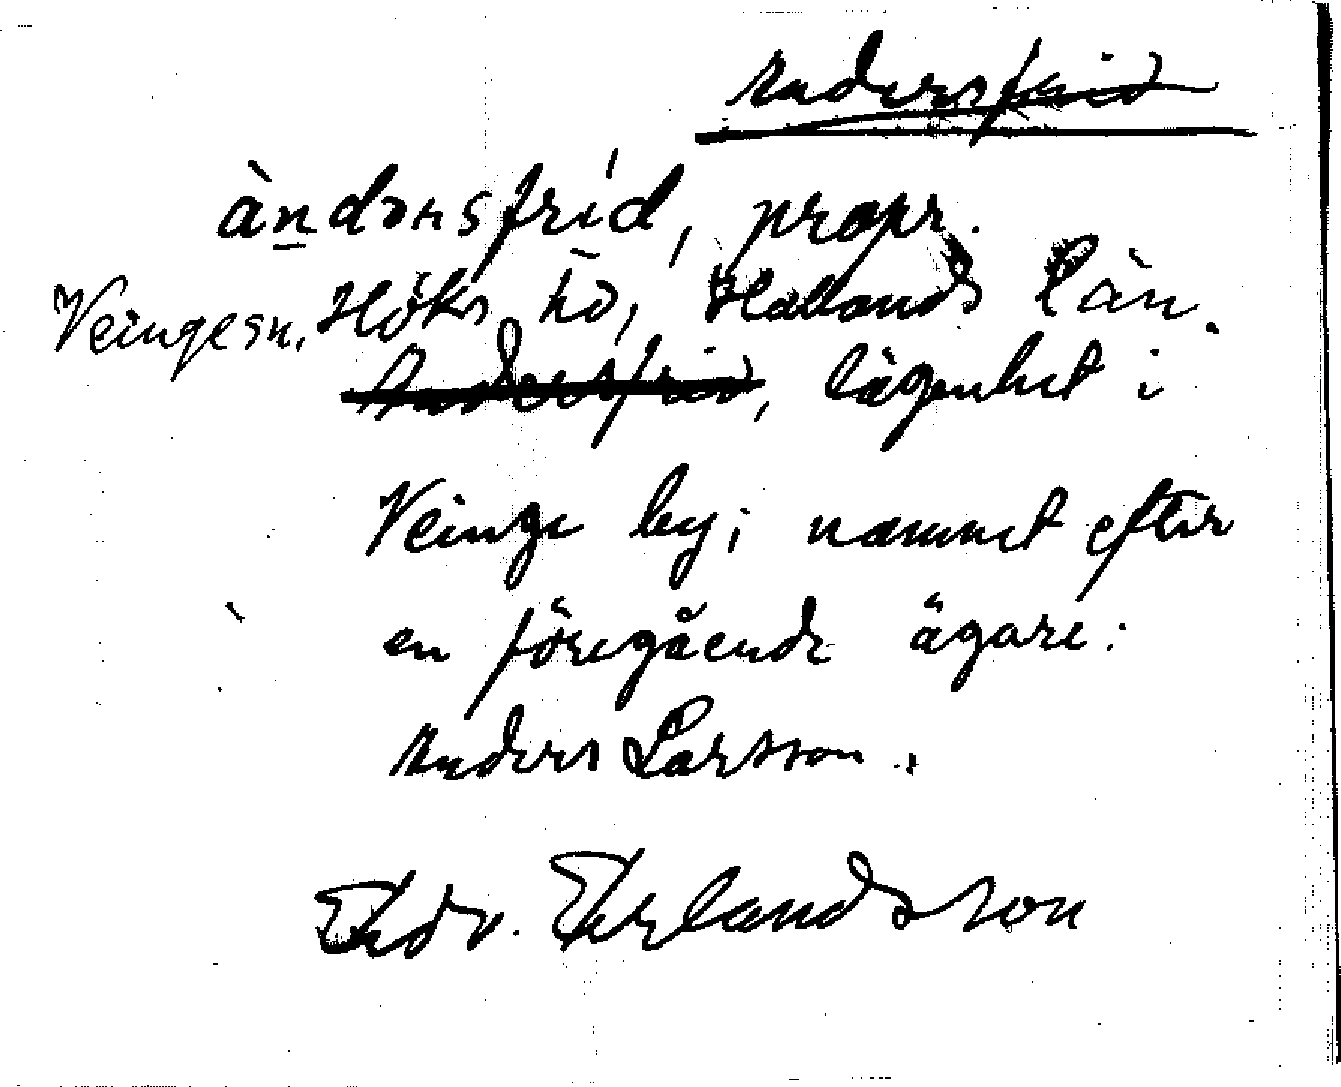 Andersfrid
àndərsfríd, propr.
Veinge sn. Höks hd, Hallands län.
Andersfrid, lägenhet i
Veinge by; namnet efter
en föregående ägare:
Anders Larsson.
Edv. Erlandsson